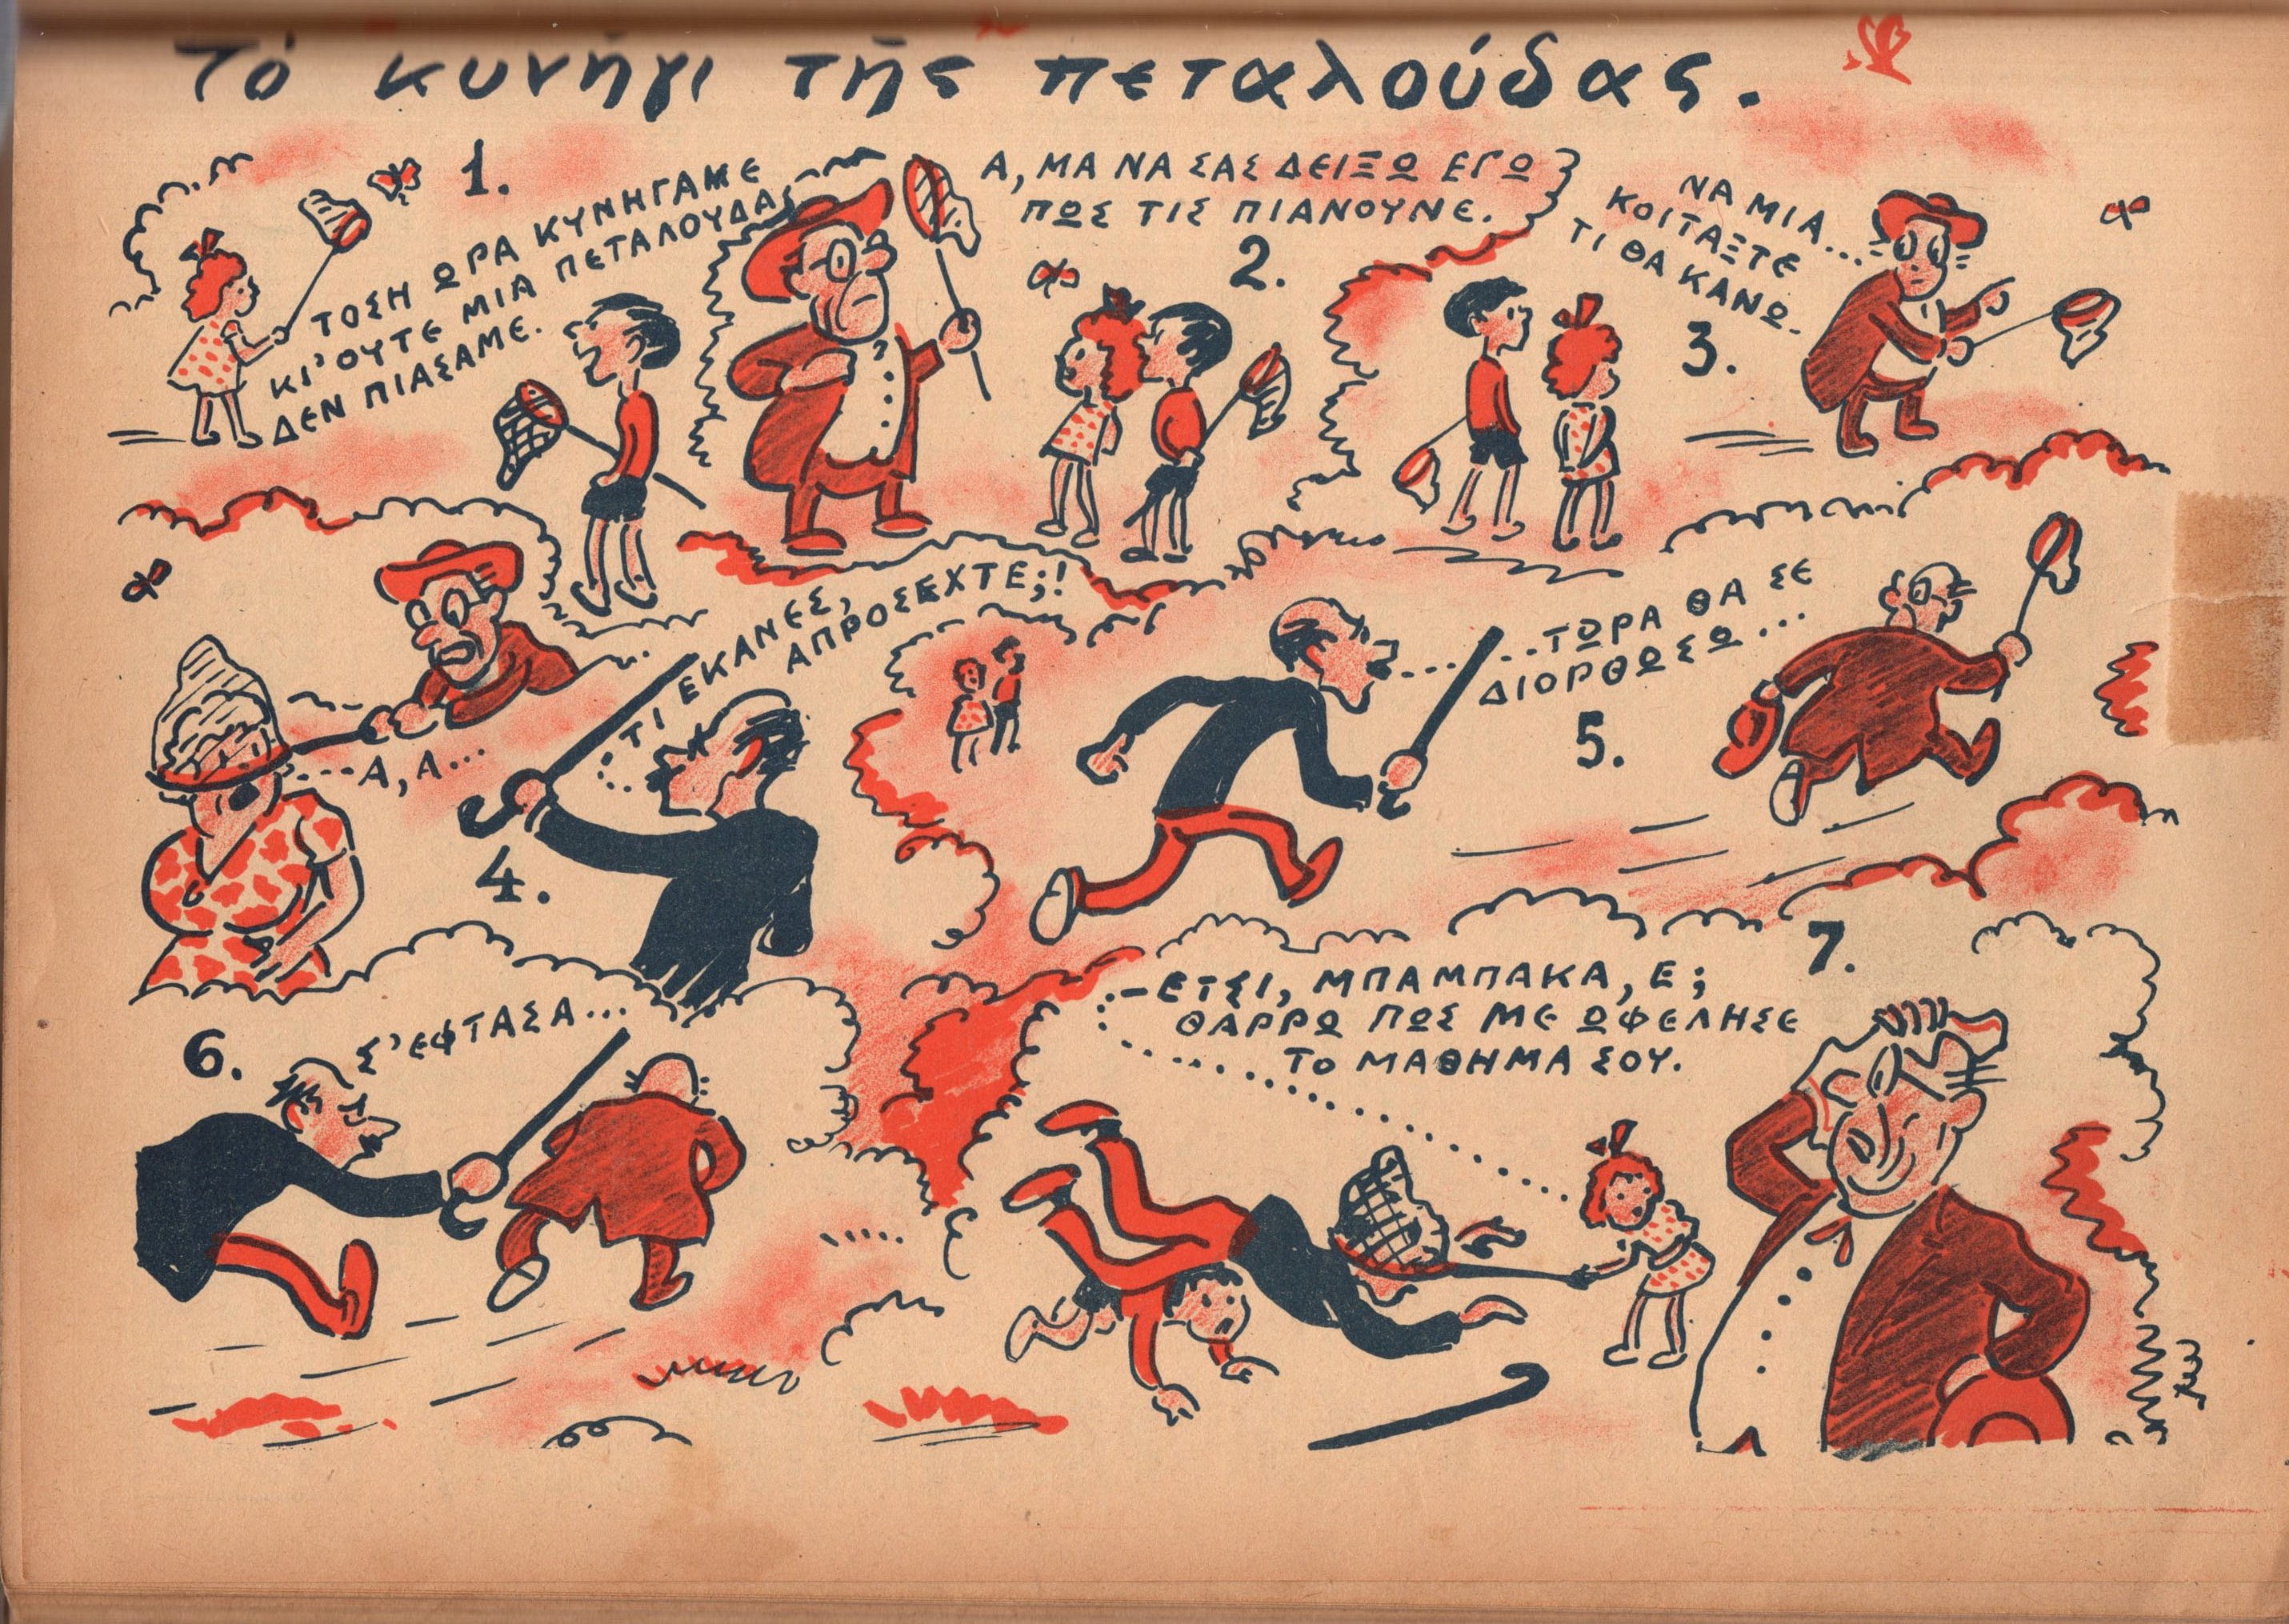 Τό κυνῆγι τῆς πεταλούδας.
1.
ΤΟΣΗ ΩΡΑ ΚΥΝΗΓΑΜΕ
ΚΙ' ΟΥΤΕ ΜΙΑ ΠΕΤΑΛΟΥΔΑ
ΔΕΝ ΠΙΑΣΑΜΕ.
Α, ΜΑ ΝΑ ΣΑΣ ΔΕΙΞΩ ΕΓΩ
ΠΩΣ ΤΙΣ ΠΙΑΝΟΥΝΕ.
2.
ΝΑ ΜΙΑ...
ΚΟΙΤΑΞΤΕ
ΤΙ ΘΑ ΚΑΝΩ.
3.
Α, Α...
ΤΙ ΕΚΑΝΕΣ,
ΑΠΡΟΣΕΧΤΕ;!
4.
...ΤΩΡΑ ΘΑ ΣΕ
ΔΙΟΡΘΩΣΩ...
5.
6.
Σ' ΕΦΤΑΣΑ...
7.
-ΕΤΣΙ, ΜΠΑΜΠΑΚΑ, Ε;
ΘΑΡΡΩ ΠΩΣ ΜΕ ΩΦΕΛΗΣΕ
ΤΟ ΜΑΘΗΜΑ ΣΟΥ.